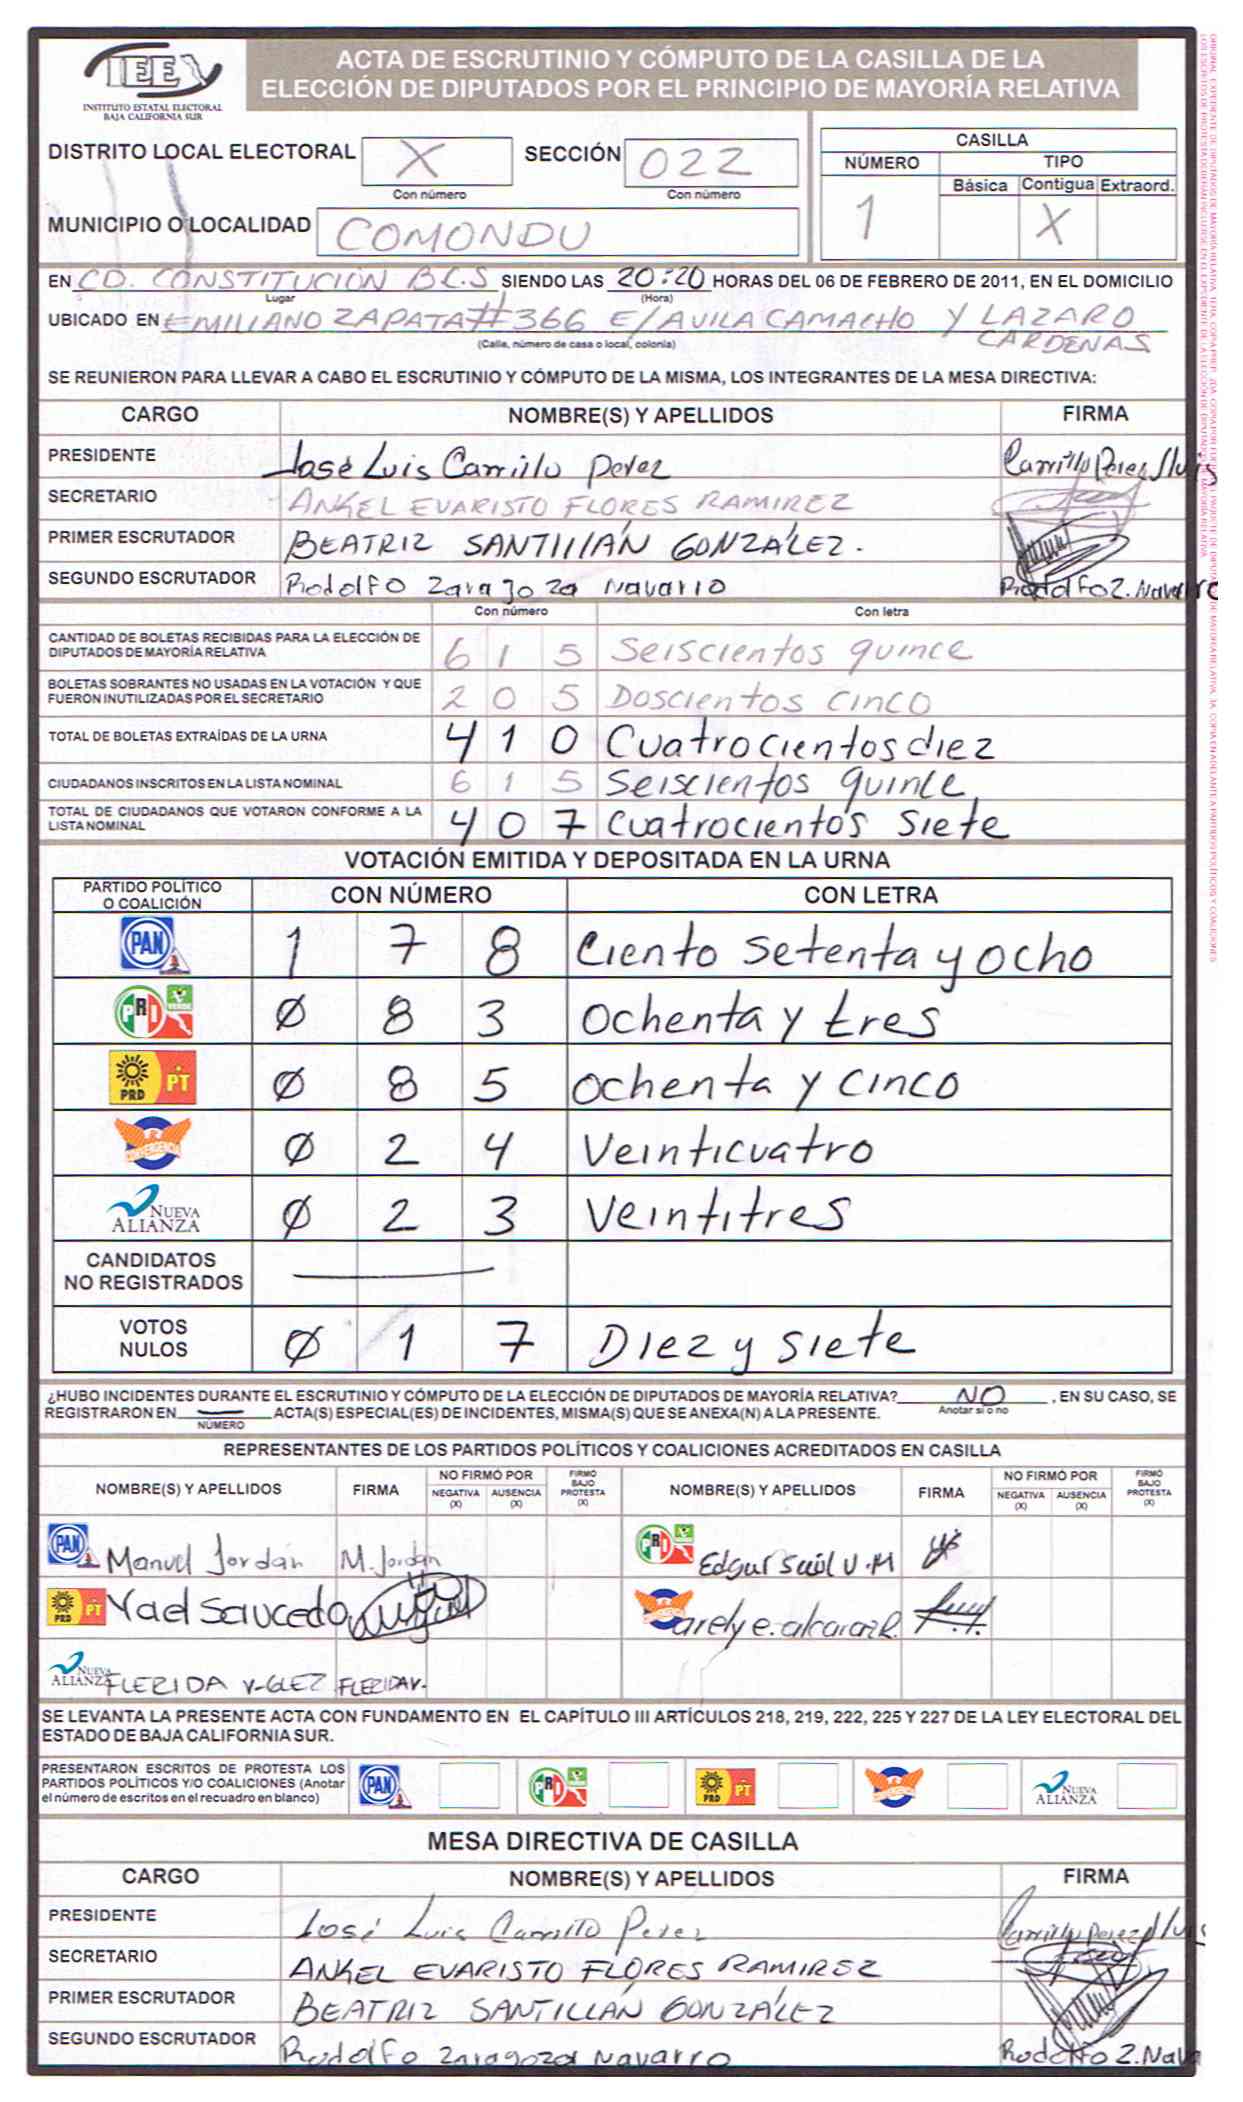 IEE
INSTITUTO ESTATAL ELECTORAL
BAJA CALIFORNIA SUR
ACTA DE ESCRUTINIO Y CÓMPUTO DE LA CASILLA DE LA
ELECCIÓN DE DIPUTADOS POR EL PRINCIPIO DE MAYORÍA RELATIVA
DISTRITO LOCAL ELECTORAL X SECCIÓN 022
Con número Con número
MUNICIPIO O LOCALIDAD COMONDU
CASILLA
NÚMERO TIPO
Básica Contigua Extraord.
1 X
EN CD. CONSTITUCIÓN B.C.S SIENDO LAS 20:20 HORAS DEL 06 DE FEBRERO DE 2011, EN EL DOMICILIO
Lugar (Hora)
UBICADO EN EMILIANO ZAPATA # 366 E/ AVILA CAMACHO Y LAZARO
CARDENAS
(Calle, número de casa o local, colonia)
SE REUNIERON PARA LLEVAR A CABO EL ESCRUTINIO Y CÓMPUTO DE LA MISMA, LOS INTEGRANTES DE LA MESA DIRECTIVA:
CARGO NOMBRE(S) Y APELLIDOS FIRMA
PRESIDENTE José Luis Carrillo Perez Carrillo Perez Jluis
SECRETARIO ANGEL EVARISTO FLORES RAMIREZ
PRIMER ESCRUTADOR BEATRIZ SANTILLÁN GONZÁLEZ.
SEGUNDO ESCRUTADOR Rodolfo Zaragoza Navarro Rodolfo Z. Navarro
Con número Con letra
CANTIDAD DE BOLETAS RECIBIDAS PARA LA ELECCIÓN DE
DIPUTADOS DE MAYORÍA RELATIVA 6 1 5 Seiscientos quince
BOLETAS SOBRANTES NO USADAS EN LA VOTACIÓN Y QUE
FUERON INUTILIZADAS POR EL SECRETARIO 2 0 5 Doscientos cinco
TOTAL DE BOLETAS EXTRAÍDAS DE LA URNA 4 1 0 Cuatrocientos diez
CIUDADANOS INSCRITOS EN LA LISTA NOMINAL 6 1 5 Seiscientos quince
TOTAL DE CIUDADANOS QUE VOTARON CONFORME A LA
LISTA NOMINAL 4 0 7 Cuatrocientos siete
VOTACIÓN EMITIDA Y DEPOSITADA EN LA URNA
PARTIDO POLÍTICO
O COALICIÓN CON NÚMERO CON LETRA
PAN 1 7 8 Ciento setenta y ocho
PRI VERDE Ø 8 3 Ochenta y tres
PRD PT Ø 8 5 Ochenta y cinco
CONVERGENCIA Ø 2 4 Veinticuatro
NUEVA ALIANZA Ø 2 3 Veintitres
CANDIDATOS
NO REGISTRADOS
VOTOS
NULOS Ø 1 7 Diez y siete
¿HUBO INCIDENTES DURANTE EL ESCRUTINIO Y CÓMPUTO DE LA ELECCIÓN DE DIPUTADOS DE MAYORÍA RELATIVA? NO, EN SU CASO, SE
Anotar sí o no
REGISTRARON EN ACTA(S) ESPECIAL(ES) DE INCIDENTES, MISMA(S) QUE SE ANEXA(N) A LA PRESENTE.
NÚMERO
REPRESENTANTES DE LOS PARTIDOS POLÍTICOS Y COALICIONES ACREDITADOS EN CASILLA
NOMBRE(S) Y APELLIDOS FIRMA NO FIRMÓ POR NEGATIVA (X) AUSENCIA (X) FIRMÓ BAJO PROTESTA (X) NOMBRE(S) Y APELLIDOS FIRMA NO FIRMÓ POR NEGATIVA (X) AUSENCIA (X) FIRMÓ BAJO PROTESTA (X)
PAN Manuel Jordán M. Jordán PRI Edgar Saúl V.M
PRD PT Yael Saucedo arely e. alcaraz R.
NUEVA ALIANZA FLERIDA V-GLEZ FLERIDA V.
SE LEVANTA LA PRESENTE ACTA CON FUNDAMENTO EN EL CAPÍTULO III ARTÍCULOS 218, 219, 222, 225 Y 227 DE LA LEY ELECTORAL DEL
ESTADO DE BAJA CALIFORNIA SUR.
PRESENTARON ESCRITOS DE PROTESTA LOS
PARTIDOS POLÍTICOS Y/O COALICIONES (Anotar
el número de escritos en el recuadro en blanco)
PAN PRI PRD PT CONVERGENCIA NUEVA ALIANZA
MESA DIRECTIVA DE CASILLA
CARGO NOMBRE(S) Y APELLIDOS FIRMA
PRESIDENTE José Luis Carrillo Perez Carrillo perez Jluis
SECRETARIO ANGEL EVARISTO FLORES RAMIREZ
PRIMER ESCRUTADOR BEATRIZ SANTILLÁN GONZÁLEZ
SEGUNDO ESCRUTADOR Rodolfo Zaragoza Navarro Rodolfo Z. Nava